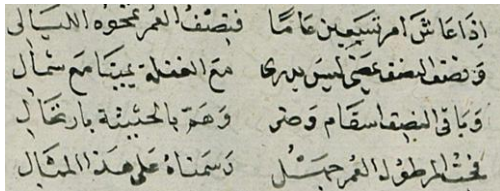 اذا عاش امر تسعين عاما فنصف العمر تمحوه الليالي
ونصف النصف يمضي ليس يدري مع الغفلة يمينا مع شمال
وباقي النصف اسقام وضر وهم بارتحال
فحب المر طول العمر جهل على هذا المثال